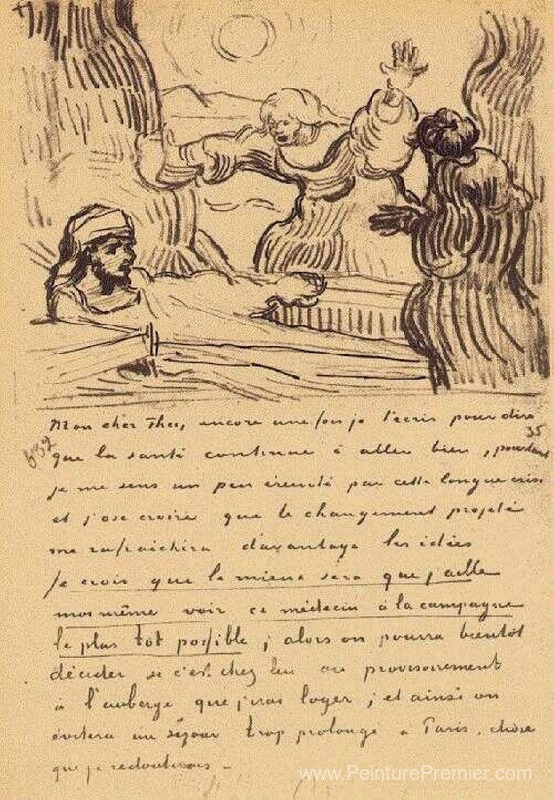 Mon cher Theo, encore une fois je t'écris pour dire
35
632
que la santé continue à aller bien, pourtant
je me sens un peu éreinté par cette longue crise
et j'ose croire que le changement projeté
me rafraichira davantage les idées
Je crois que le mieux sera que j'aille
moi même voir ce médecin à la campagne
le plus tot possible ; alors on pourra bientôt
décider si c'est chez lui ou provisoirement
à l'auberge que j'irai loger ; et ainsi on
évitera un séjour trop prolongé à Paris, chose
que je redouterais —
www.PeinturePremier.com